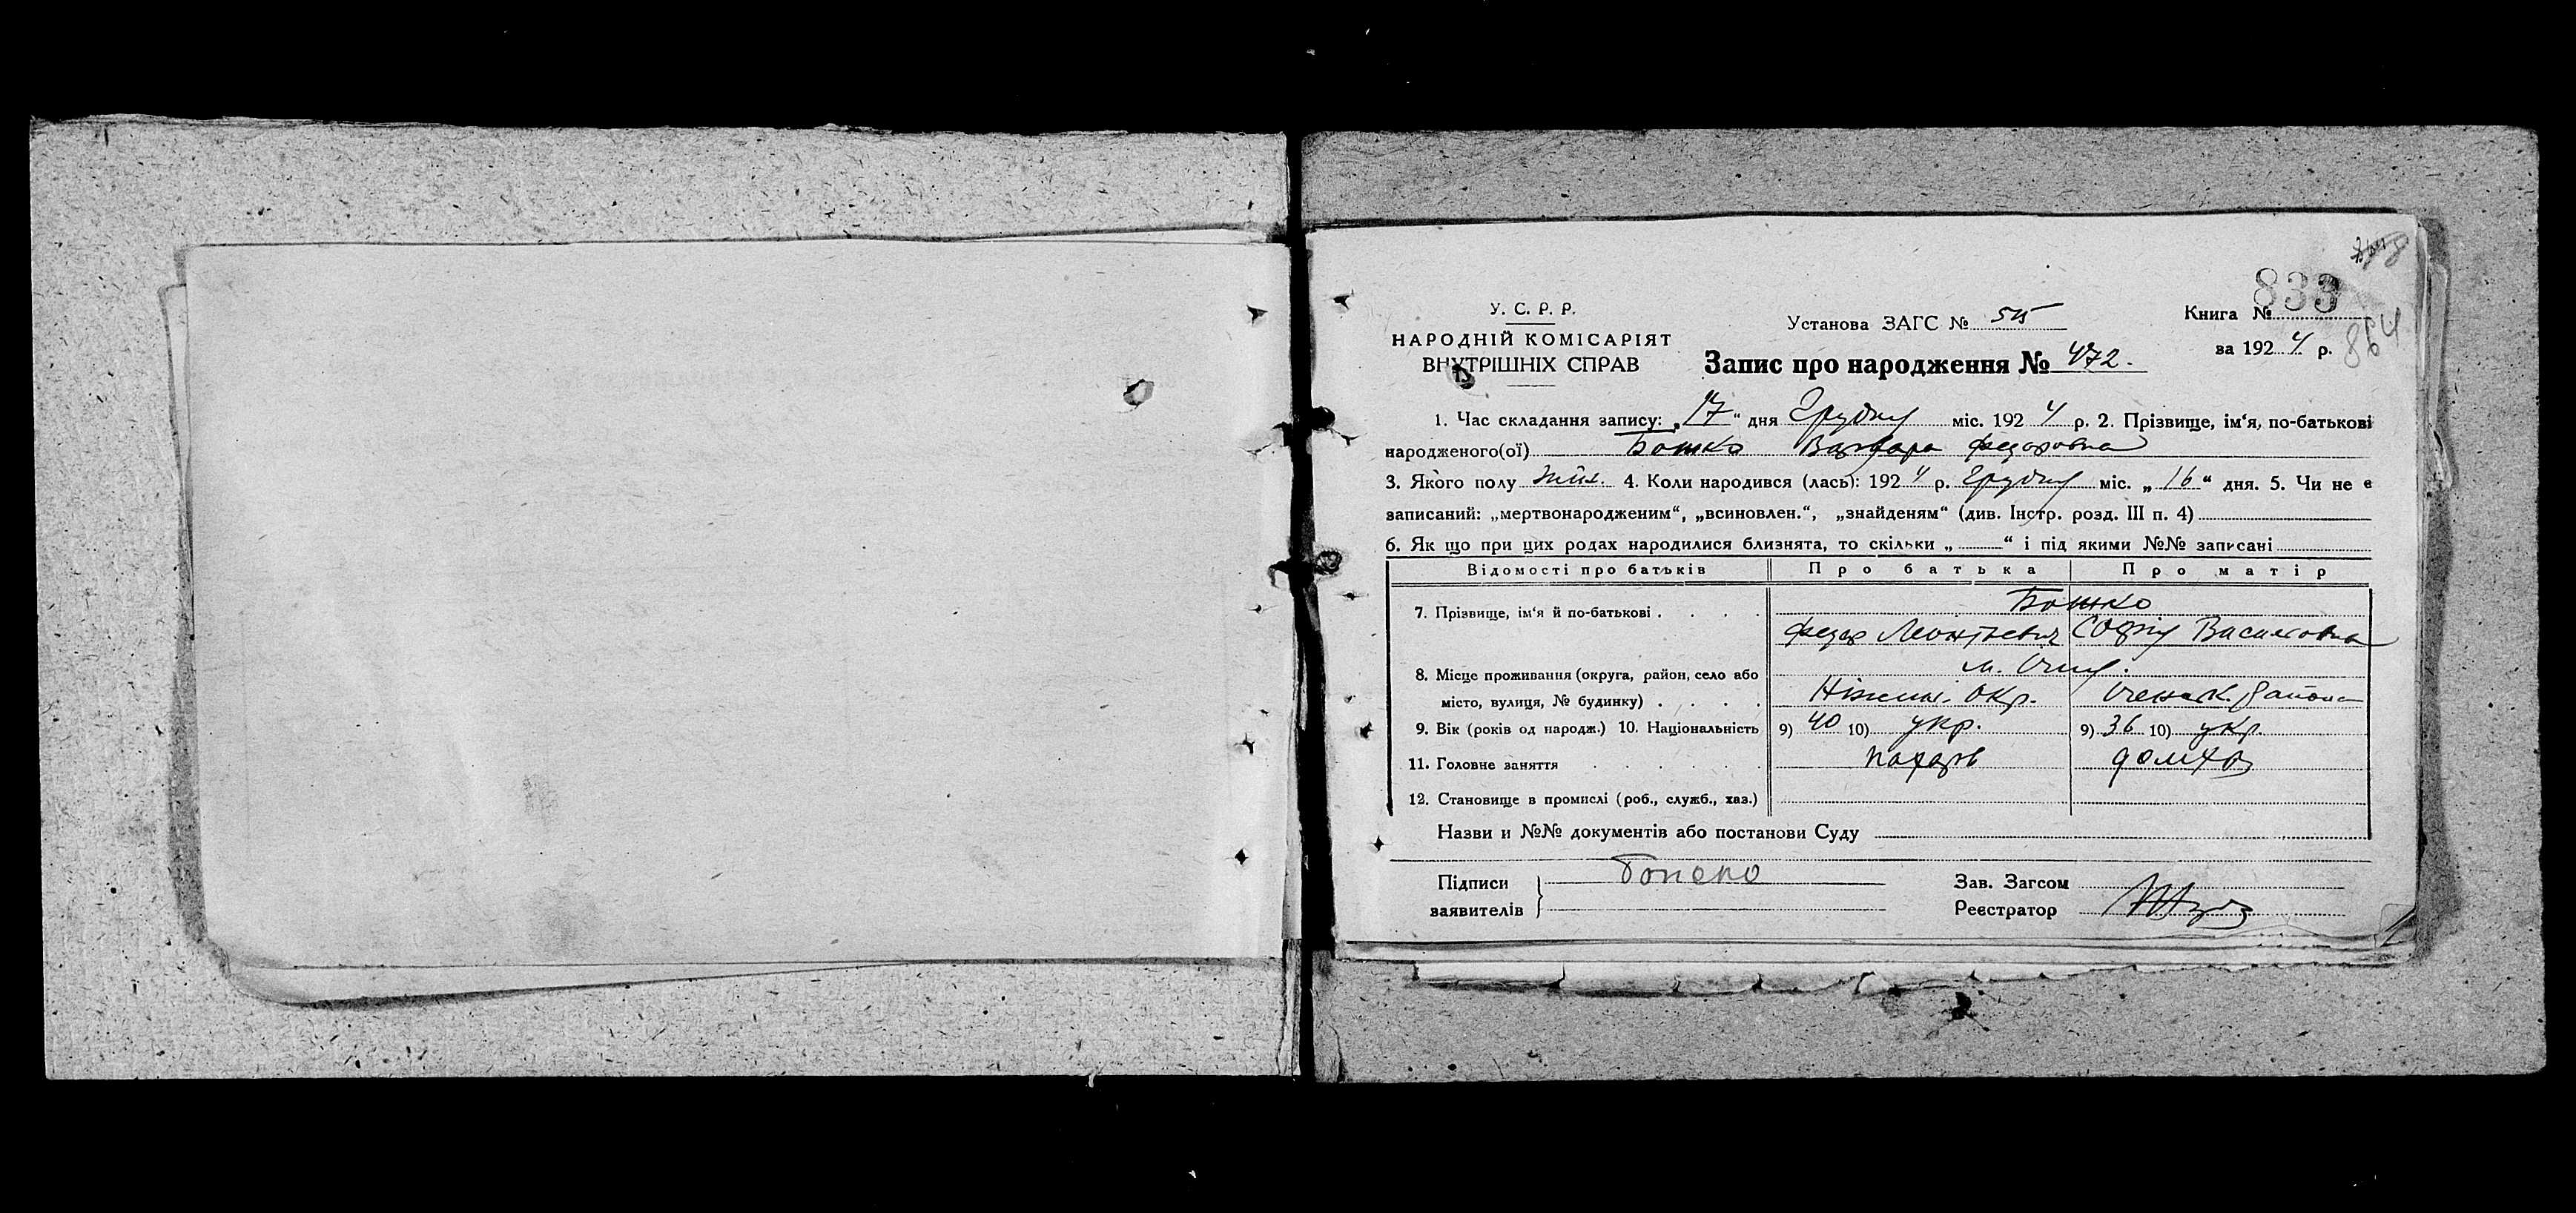 833
864
У. С. Р. Р.
НАРОДНІЙ КОМІСАРІЯТ
ВНУТРІШНІХ СПРАВ
Установа ЗАГС № 515
Книга №
за 1924 р.
Запис про народження № 472.
1. Час складання запису: „17“ дня Грудня міс. 1924 р. 2. Прізвище, ім‘я, по-батькові
народженого(ої) Бошко Варвара Федоровна
3. Якого полу жін. 4. Коли народився (лась): 1924 р. Грудня міс. „16“ дня. 5. Чи не є
записаний: „мертвонародженим“, „всиновлен.“, „знайденям“ (див. Інстр. розд. III п. 4)
6. Як що при цих родах народилися близнята, то скільки „ “ і під якими №№ записані
Відомості про батьків Про батька Про матір
7. Прізвище, ім‘я й по-батькові . . . . Бошко
Федор Леонтьевич Софія Василовна
8. Місце проживання (округа, район, село або м. Ічня.
місто, вулиця, № будинку) . . . . Ніжинс. окр. Іченск. района
9. Вік (років од народж.) 10. Національність 9) 40 10) укр. 9) 36 10) укр.
11. Головне заняття . . . . . домхоз
12. Становище в промислі (роб., служб., хаз.)
Назви и №№ документів або постанови Суду
Підписи
заявителів
Зав. Загсом
Реєстратор